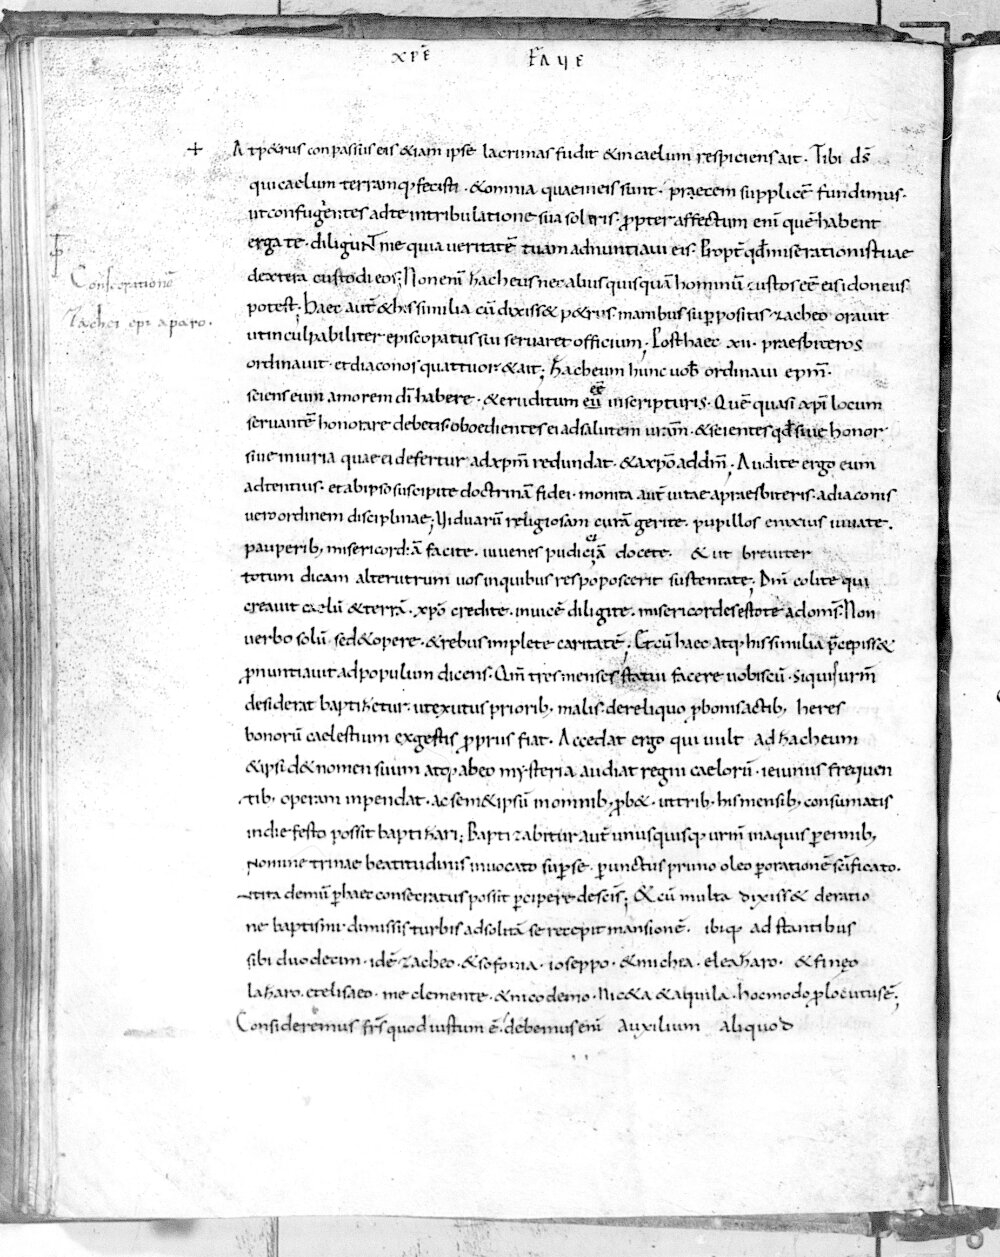 xpē fāue
+ At petrus conpassus eis &iam ipse lacrimas fudit &in caelum respiciens ait. Tibi dš
qui caelum terramq; fecisti. &omnia quae in eis sunt. praecem supplicē fundimus.
ut confugientes ad te in tribulatione sua solaris. propter affectum enī quē habent
erga te. diligunt me quia ueritatē tuam adnuntiaui eis. Propt̄ qđ miserationis tuae
dextera custodi eos; Non enī zacheus nec alius quisquā hominū custos eē eis idoneus
Consecrationē
Zachei epi a paro.
potest; Haec aut̄ & his similia cū dixiss& p&rus. manibus suppositis zacheo orauit
ut inculpabiliter episcopatus sui seruaret officium; Post haec xii. praesbiteros
ordinauit. et diaconos quattuor &ait; Zacheum hunc uob̄ ordinaui epm̄.
sciens eum amorem dī habere. & eruditum eū eē in scripturis. Quē quasi xpī locum
seruantē honorare debetis. oboedientes ei ad salutem uram̄. & scientes qđ siue honor
siue iniuria quae ei defertur ad xpm̄ redundat. & a xpō ad dm̄; Audite ergo eum
adtentius. et ab ipso suscipite doctrinā fidei. monita aut̄ uitae a praesbiteris. a diaconis
uero ordinem disciplinae; Uiduarū religiosam curā gerite. pupillos enixius iuuate.
pauperib; misericordiā facite. iuuenes pudiciciā docete. & ut breuiter
totum dicam alterutrum uos in quibus res poposcerit sustentate; Dm̄ colite qui
creauit caelū & terrā. xpō credite. inuicē diligite. misericordes estote ad om̄s. Non
uerbo solū. sed & opere. & rebus implete caritatē; Et cū haec atq; his similia p̄cepiss&
pronuntiauit ad populum dicens. Qm̄ tres menses statui facere uobiscū. siquis urm̄
desiderat baptizetur. ut exutus priorib; malis. de reliquo p bonis actib; heres
bonorū caelestium ex gestis proprus fiat. Accedat ergo qui uult ad zacheum
& ipsi d& nomen suum atq; ab eo mysteria audiat regni caelorū. ieiunus frequen
tib; operam inpendat. ac sem&ipsū in omnib; prob&. ut trib; his mensib; consumatis
in die festo possit baptizari; Baptizabitur aut̄ unusquisq; urm̄ in aquis perennib;
Nomine trinae beatitudinis inuocato sup se. perunctus primo oleo p orationē scīficato.
ut ita demū p haec consecratus possit percipere de scīs; & cū multa dixiss& de ratio
ne baptismi dimissis turbis ad solitā se recepit mansionē. ibiq; ad stantibus
sibi duodecim. idē zacheo. & sofonia. ioseppo. & michea. eleazaro. & fineo
lazaro. et elisaeo. me clemente. & nicodemo. Nic&a & aquila. hoc modo plocutus ē;
Consideremus frs̄ quod iustum ē. debemus enī auxilium aliquod